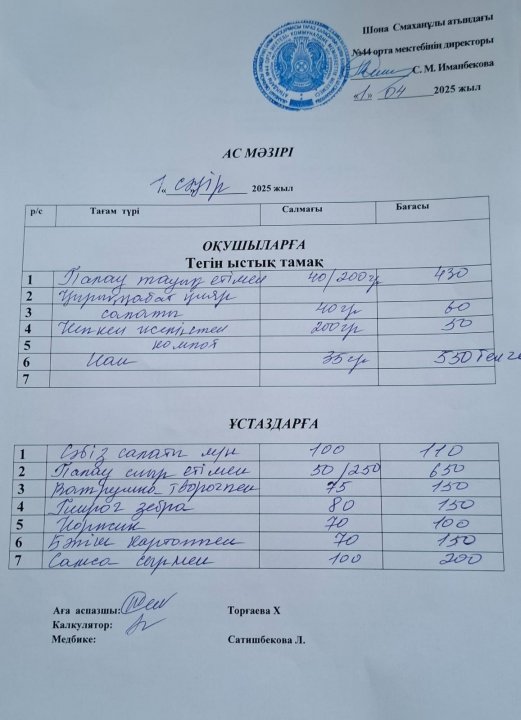 Шона Смаханұлы атындағы
№44 орта мектебінің директоры
С. М. Иманбекова
«1» 04 2025 жыл
АС МӘЗІРІ
1 « сәуір 2025 жыл
р/с Тағам түрі Салмағы Бағасы
ОҚУШЫЛАРҒА
Тегін ыстық тамақ
1 Палау тауық етімен 40/200гр 430
2 Қырыққабат қияр
3 салаты 40гр 60
4 Кепкен жемістен 200гр 50
5 компот
6 Нан 35гр 550 тенге
7
ҰСТАЗДАРҒА
1 Сәбіз салаты 100 110
2 Палау сиыр етімен 50/250 650
3 Ватрушка творогпен 75 150
4 Пирог зебра 80 150
5 Коржик 70 100
6 Бәліш картоппен 70 150
7 Самса сырмен 100 200
Аға аспазшы: Торғаева Х
Калкулятор:
Медбике: Сатишбекова Л.